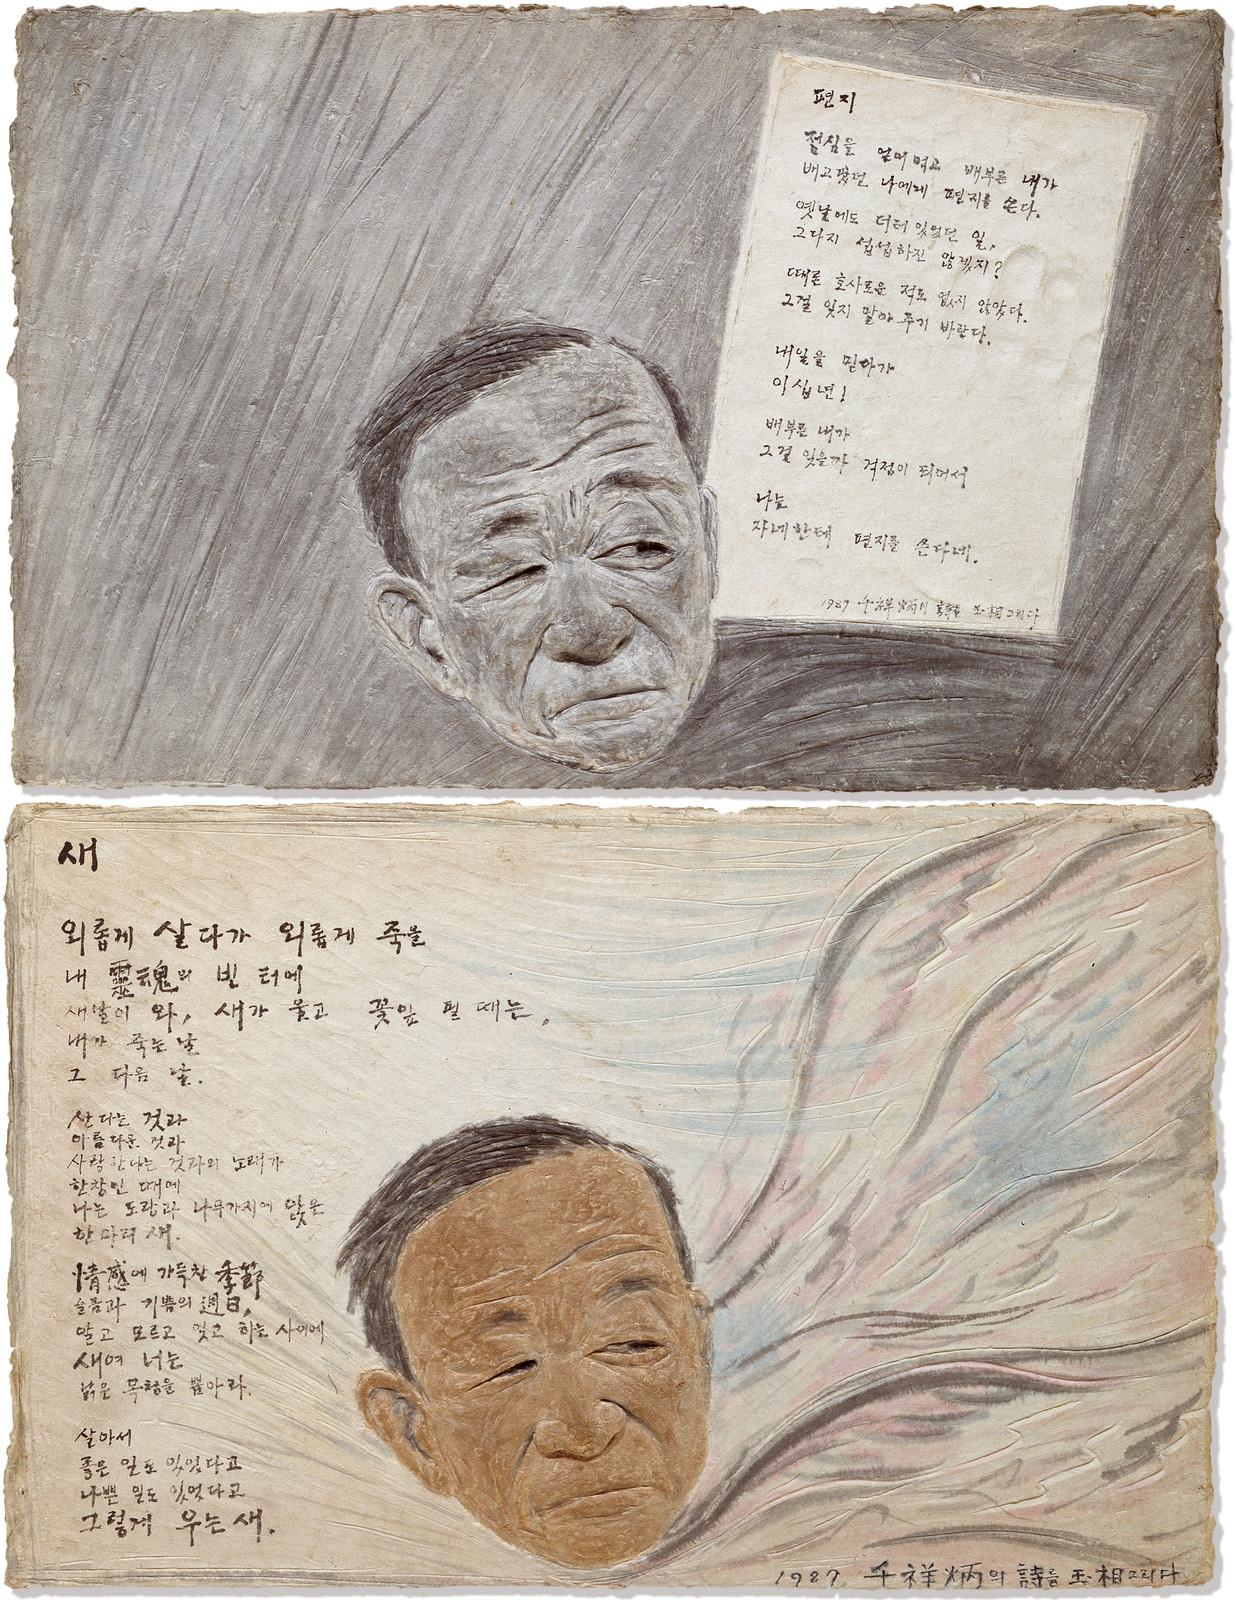 편지
점심을 얻어 먹고 배부른 내가
배고팠던 나에게 편지를 쓴다.
옛날에도 더러 있었던 일,
그다지 섭섭하진 않겠지?
때론 호사로운 적도 없지 않았다.
그걸 잊지 말아 주기 바란다.
내일을 믿다가
이십년!
배부른 내가
그걸 잊을까 걱정이 되어서
나는
자네한테 편지를 쓴다네.
1987 千祥炳의 詩를 玉相그리다
새
외롭게 살다가 외롭게 죽을
내 靈魂의 빈 터에
새날이 와, 새가 울고 꽃잎 필 때는,
내가 죽는 날
그 다음 날.
산다는 것과
아름다운 것과
사랑한다는 것과의 노래가
한창인 때에
나는 도랑과 나무가지에 앉은
한 마리 새.
情感에 가득찬 季節
슬픔과 기쁨의 週日,
알고 모르고 잊고 하는 사이에
새여 너는
낡은 목청을 뽑아라.
살아서
좋은 일도 있었다고
나쁜 일도 있었다고
그렇게 우는 새.
1987 千祥炳의 詩를 玉相그리다